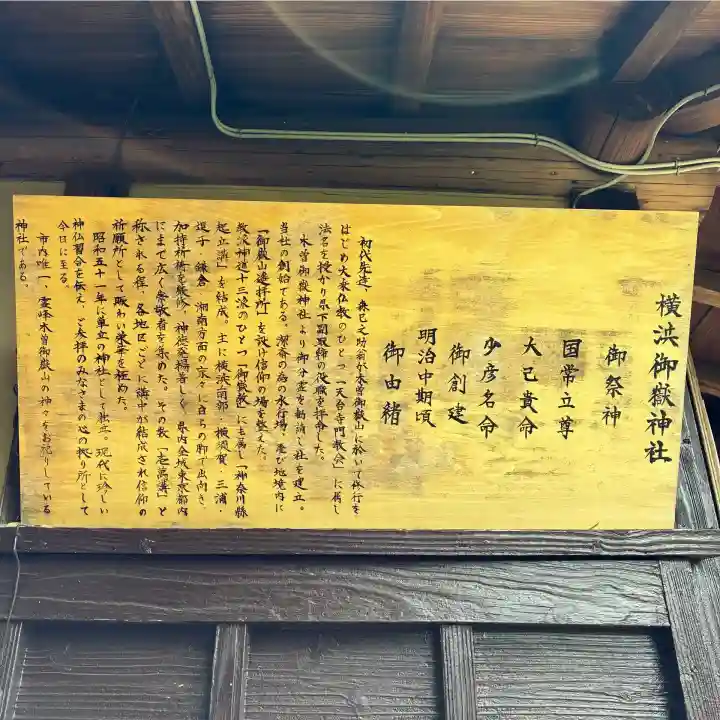 横浜御嶽神社
御祭神
国常立尊
大己貴命
少彦名命
御創建
明治中期頃
御由緒
初代先達、森巳之助翁が木曽御嶽山に於いて修行を
はじめ大乗仏教のひとつ「天台寺門教会」に属し
法名を授かり県下副取締の役職を拝命した。
木曽御嶽神社より御分霊を勧請し社を建立。
当社の創始である。潔斎の為の水行場、並び地境内に
「御嶽山遥拝所」を設け信仰の場を整えた。
教派神道十三派のひとつ「御嶽教」にも属し「神奈川縣
」を結成。主に横浜南部、横須賀、三浦・
逗子・鎌倉、湘南方面の家々に自らの脚で出向き、
加持祈祷を厳修、神徳発揚著しく、県内全域東京都内
にまで広く崇敬者を集めた。その数「
講」と
称される程、各地区ごとに講中が結成され信仰の
祈願所として賑わい栄華を極めた。
昭和五十一年に単立の神社として独立。現代に珍しい
神仏習合を伝え、ご参拝のみなさまの心の拠り所として
今日に至る。
市内唯一、霊峰木曽御嶽山の神々をお祀りしている
神社である。